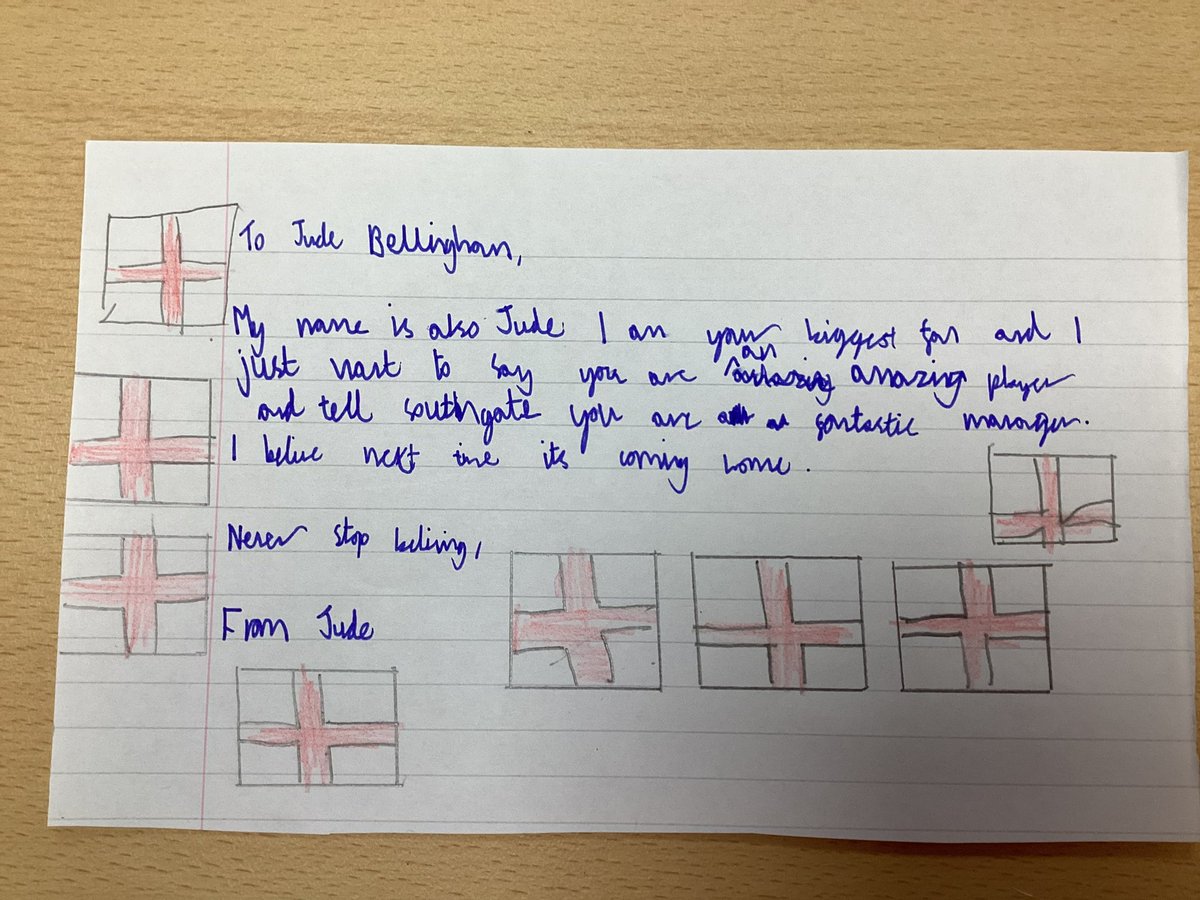 To Jude Bellingham,
My name is also Jude I am your biggest fan and I
just want to say you are an amazing player
and tell southgate you are a fantastic manager.
I belive next time its coming home.
Never stop beliving,
From Jude